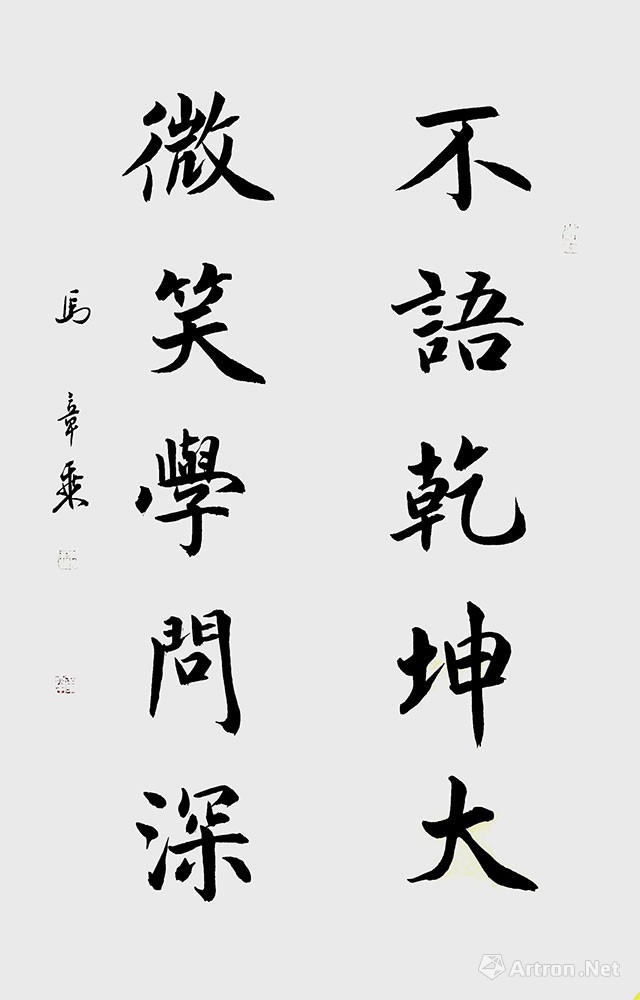 不語乾坤大
微笑學問深
馬章乘
Artron.Net